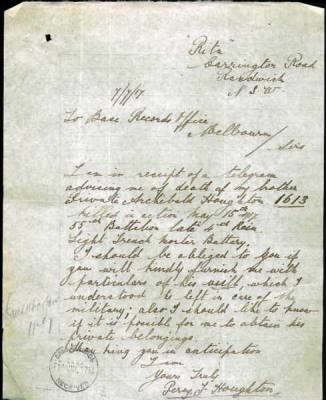 "Rita"
Carrington Road
Randwick
N S W
7/7/17
To Base Records Office
Melbourne
Sirs
I am in receipt of a telegram
advising me of death of my brother
Private Archibald Houghton 1613
killed in action May 15th 1917
55th Battalion late 4th Rein
Light Trench Mortar Battery,
I should be obliged to you if
you will kindly furnish me with
particulars of his will, which I
understood is left in care of the
military; also I should like to know
if it is possible for me to obtain his
private belongings.
Thanking you in anticipation
I am
Yours Truly
Percy J Houghton
RECEIVED